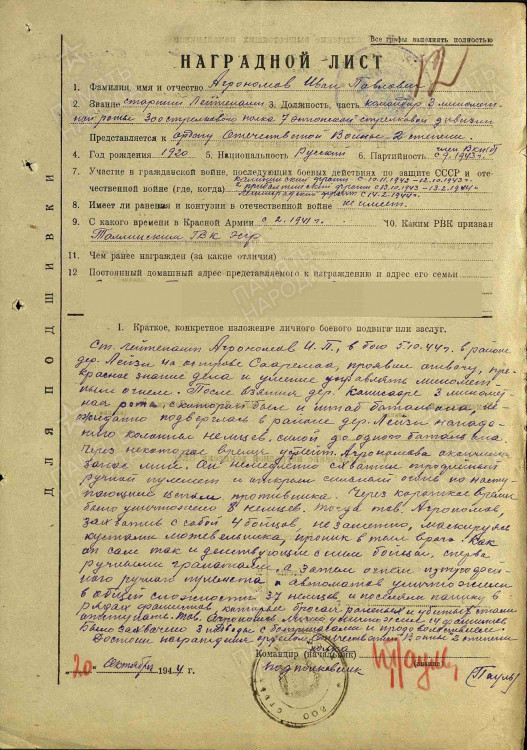 Все графы заполнять полностью
НАГРАДНОЙ ЛИСТ
12
1. Фамилия, имя и отчество Агрономов Иван Павлович
2. Звание старший лейтенант 3. Должность, часть командир 3 миномет-
ной роты 300 стрелкового полка 7 эстонской стрелковой дивизии
Представляется к ордену Отечественной Войны 2 степени
4. Год рождения 1920 5. Национальность Русский 6. Партийность член ВКП(б)
с 1943 г.
7. Участие в гражданской войне, последующих боевых действиях по защите СССР и оте-
чественной войне (где, когда) Калининский фронт
Прибалтийский фронт
Ленинградский фронт с 14.2.44 г.
8. Имеет ли ранения и контузии в отечественной войне не имеет
9. С какого времени в Красной Армии с 2.1941 г. 10. Каким РВК призван
Таллинским ГВК
11. Чем ранее награжден (за какие отличия)
12 Постоянный домашный адрес представляемого к награждению и адрес его семьи
ДЛЯ ПОДШИВКИ
I. Краткое, конкретное изложение личного боевого подвига или заслуг.
Ст. лейтенант Агрономов И.П., в бою 5.10.44 г. в районе
дер. Лейзи на острове Сааремаа, проявил отвагу, пре-
красное знание дела и умение управлять миномет-
ным огнем. После взятия дер. 3 миномет-
ная рота, с которой был и штаб батальона, не-
жиданно подверглась в районе дер. Лейзи нападе-
нию колонны немцев, силой до одного батальона.
Через некоторое время у лейт. Агрономова
запас мин. Он немедленно схватил трофейный
ручной пулемет и открыл сильный огонь по насту-
пающим цепям противника. Через короткое время
было уничтожено 8 немцев. Тогда тов. Агрономов,
захватив с собой 4 бойцов, незаметно, маскируясь
кустами можевельника, проник в тыл врага. Как
он сам так и действующие с ним бойцы, сперва
ручными гранатами, а затем огнем
ручного пулемета и автоматов уничтожили
в общей сложности 37 немцев, и посеяли панику в
рядах фашистов, которые бросая раненых и убитых стали
отступать. Тов. Агрономов лично уничтожил 14 фашистов
Было захвачено 3 с боеприпасами и продовольствием.
Достоин награждения орденом Отечественной войны 2 степени
Командир (начальник) полка
подполковник
(звание)
(Пауль)
"20" октября 1944 г.